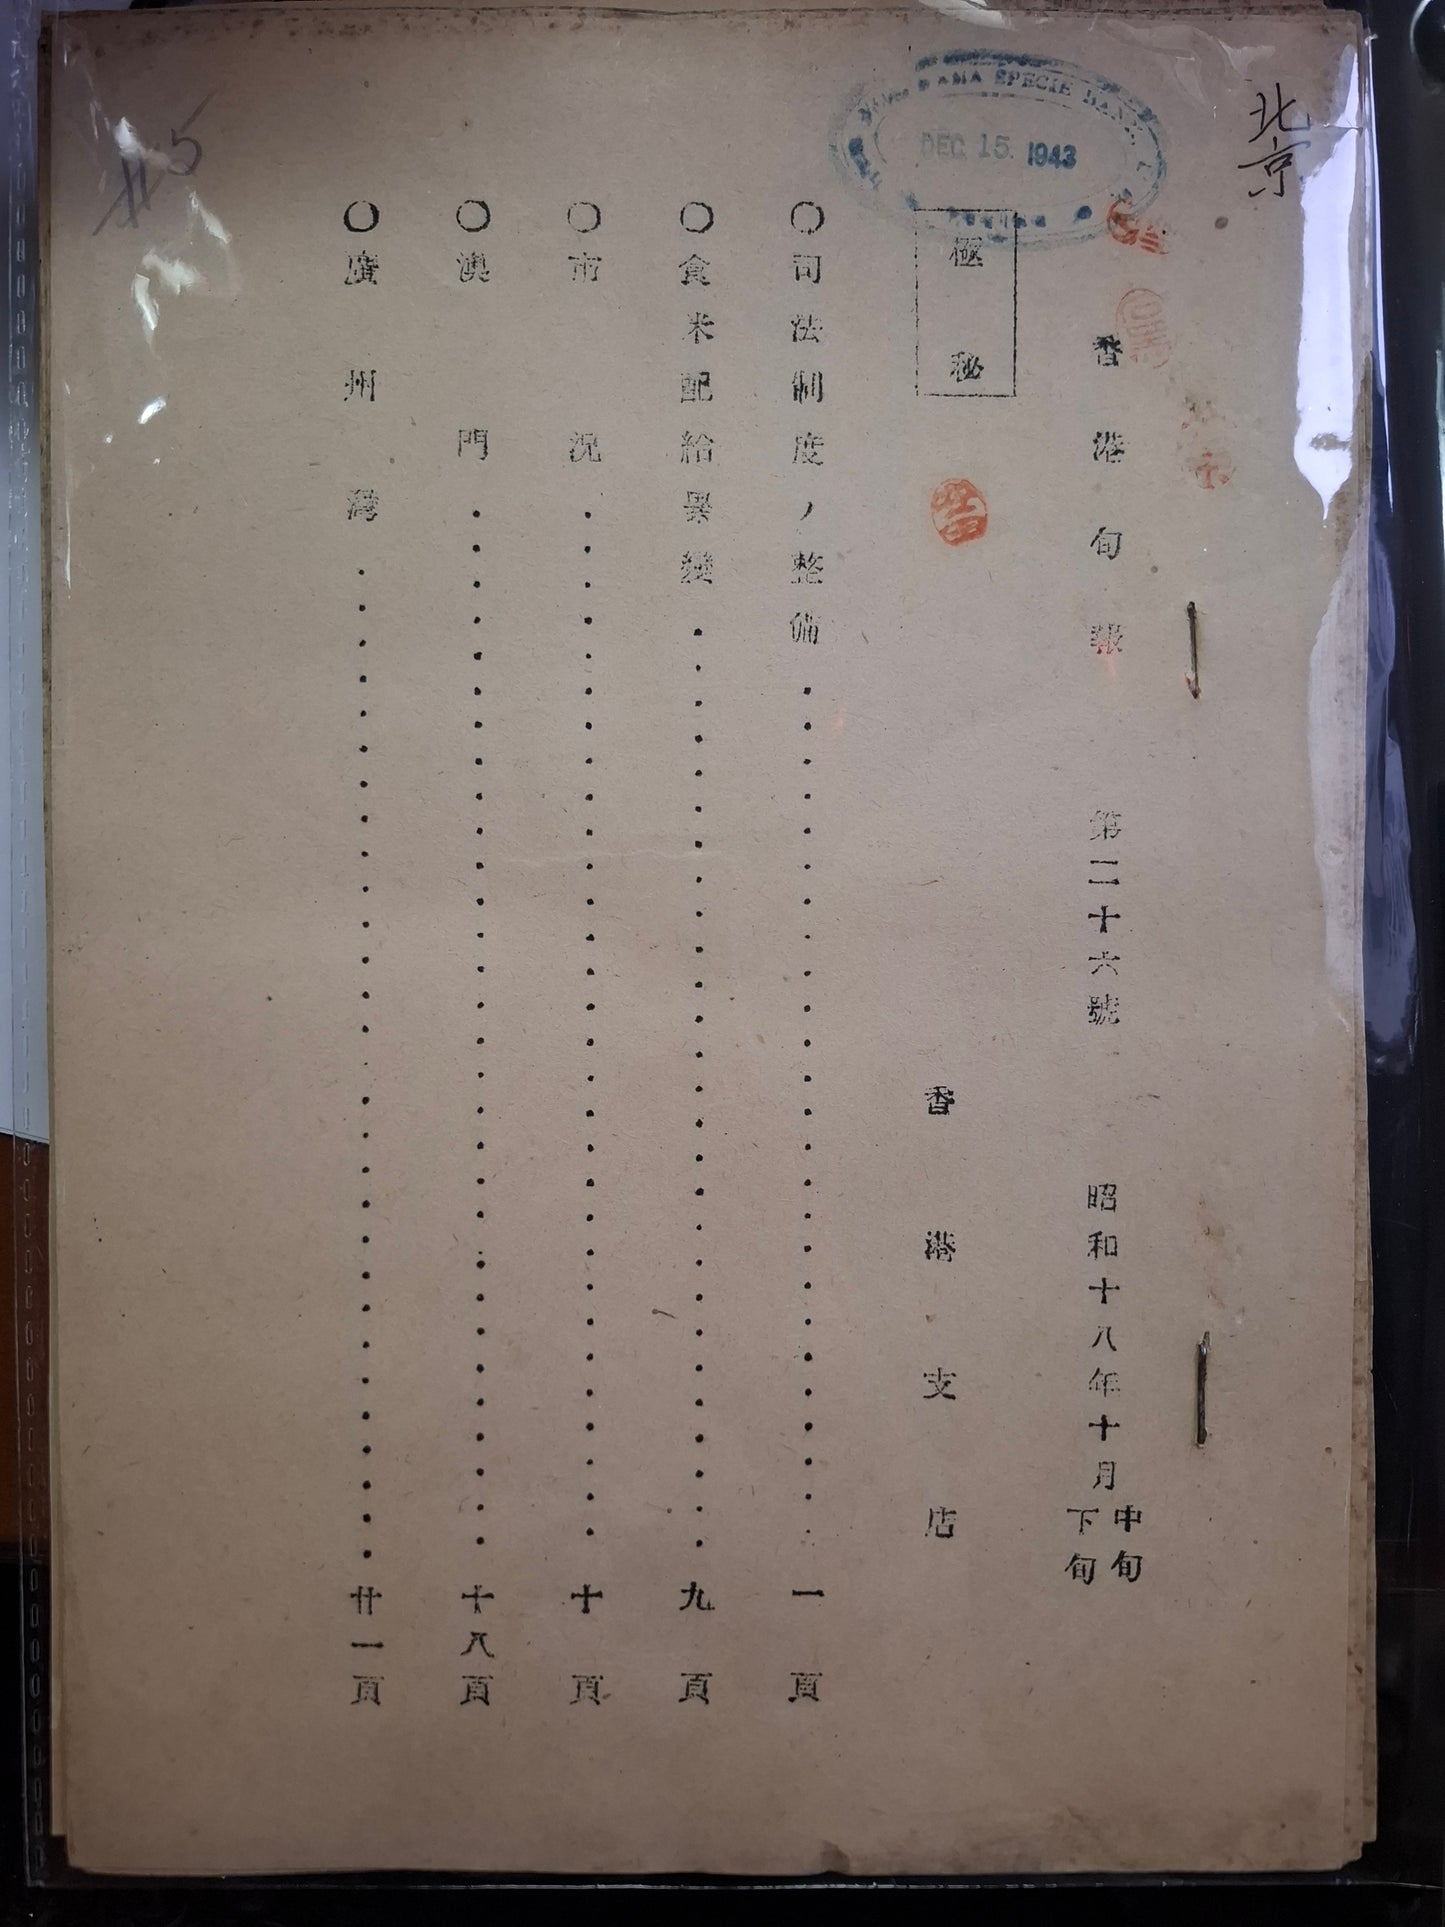 北京
SPECIE BANK
DEC 15. 1943
香港旬報 第二十六號 昭和十八年十月中旬下旬
極秘
香港支店
○司法制度ノ整備・・・・・・・・・・・・・・・・・・・・・・・・・一頁
○食米配給異變・・・・・・・・・・・・・・・・・・・・・・・・・・・九頁
○市況・・・・・・・・・・・・・・・・・・・・・・・・・・・・・・十頁
○澳門・・・・・・・・・・・・・・・・・・・・・・・・・・・・・・十八頁
○廣州灣・・・・・・・・・・・・・・・・・・・・・・・・・・・・・廿一頁
#5